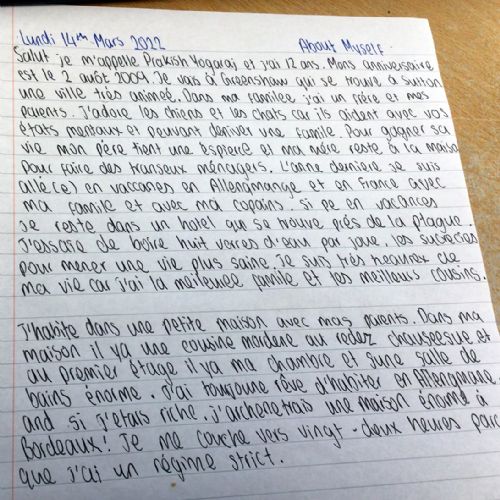 Lundi 14th Mars 2022 About Myself
Salut je m'appelle Prakish Yogaraj et j'ai 12 ans. Mons anniversaire
est le 2 août 2009. Je vais à Greenshaw qui se trouve à Sutton
une ville très animeé. Dans ma familee j'ai un frère et mes
parents. J'adore les chiens et les chats car ils aident avec vos
états mentaux et peuvant deriver une famile. Pour gagner sa
vie mon pére tient une épicere et ma mère reste à la maise
pour faire des tranjeux ménagers. L'anne derniere je suis
allé(e) en vaccanes en Allengmange et en France avec
ma famille et avec ma copains si pe en vacances
Je reste dans un hotel qui se trouve prés de la plague.
J'essaie de boire huit verres d'eau par joue. les sucrecies
pour mener une vie plus saine. Je suis très heaurex de
ma vie car j'ai la meilleuee famille et les meilleurs cousins.
J'habite dans une petite maison avec mas parents. Dans ma
maison il ya une cousine mordene au rodez chauseesue et
au premier étage il ya ma chambre et sune salle de
bains énorme. J'ai toujoune rêve d'habiter en Allengmane
and si j'etais riche. j'archenetrais une maison énomd à
Bordeaux! Je me couche vers vingt-deux heures parc
que j'ai un régime strict.